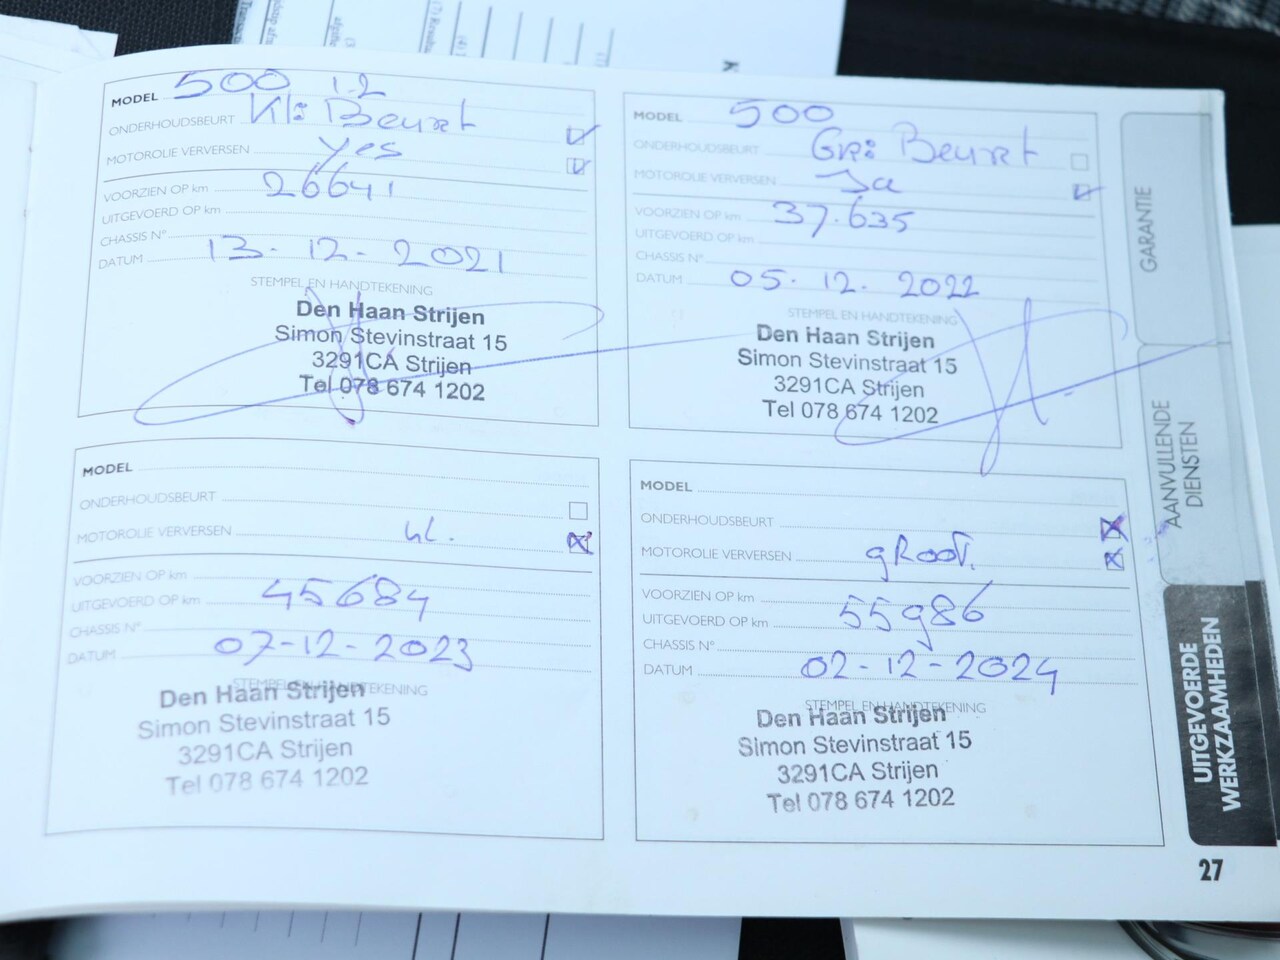 MODEL 500 1.2
ONDERHOUDSBEURT Kl: Beurt
MOTOROLIE VERVERSEN yes
VOORZIEN OP km 26641
UITGEVOERD OP km
CHASSIS N°
DATUM 13-12-2021
STEMPEL EN HANDTEKENING
Den Haan Strijen
Simon Stevinstraat 15
3291CA Strijen
Tel 078 674 1202
MODEL 500
ONDERHOUDSBEURT Gr: Beurt
MOTOROLIE VERVERSEN Ja
VOORZIEN OP km 37.635
UITGEVOERD OP km
CHASSIS N°
DATUM 05.12.2022
STEMPEL EN HANDTEKENING
Den Haan Strijen
Simon Stevinstraat 15
3291CA Strijen
Tel 078 674 1202
MODEL
ONDERHOUDSBEURT
MOTOROLIE VERVERSEN kl.
VOORZIEN OP km
UITGEVOERD OP km 45684
CHASSIS N°
DATUM 07-12-2023
STEMPEL EN HANDTEKENING
Den Haan Strijen
Simon Stevinstraat 15
3291CA Strijen
Tel 078 674 1202
MODEL
ONDERHOUDSBEURT
MOTOROLIE VERVERSEN gRooT.
VOORZIEN OP km
UITGEVOERD OP km 55986
CHASSIS N°
DATUM 02-12-2024
STEMPEL EN HANDTEKENING
Den Haan Strijen
Simon Stevinstraat 15
3291CA Strijen
Tel 078 674 1202
GARANTIE
AANVULLENDE
DIENSTEN
UITGEVOERDE
WERKZAAMHEDEN
27